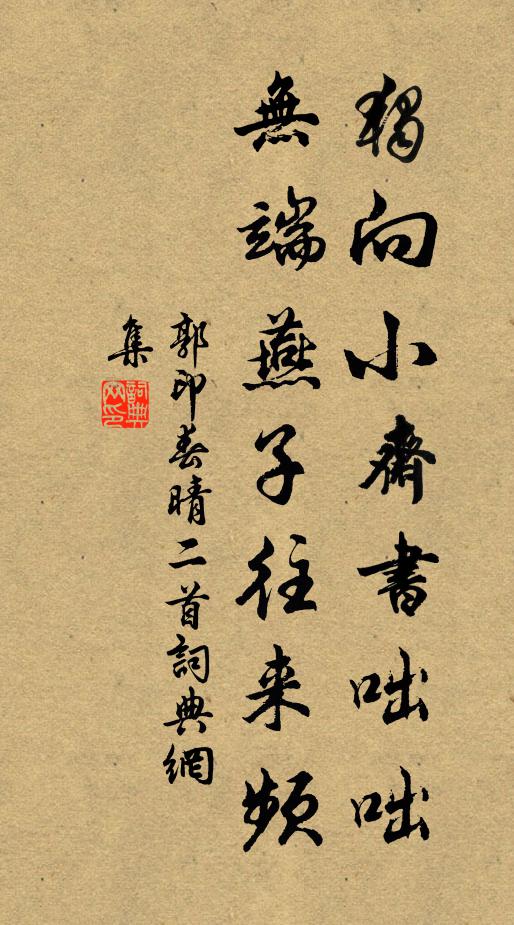 獨向小齋書咄咄
無端燕子往来頻
郭印春晴二首詞典網
集
詞典網印